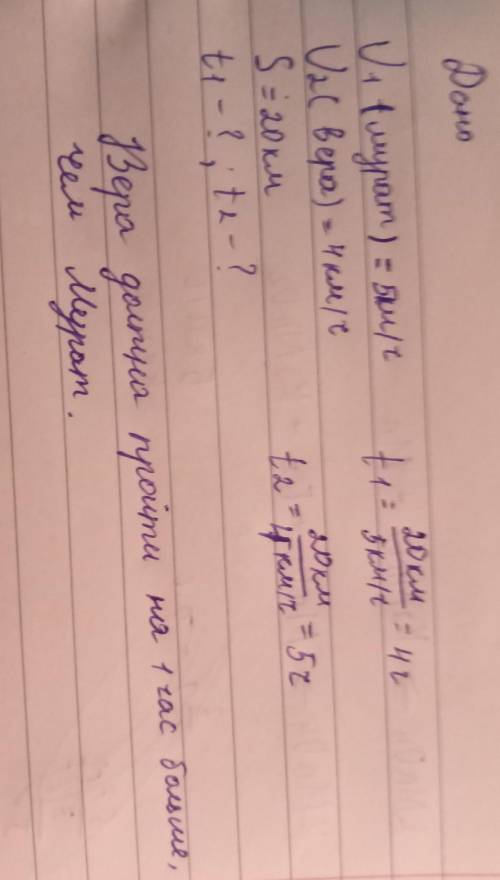 Дано
V1 (мурат) = 5км/ч t1 = 20км/5км/ч = 4ч
V2 (вера) = 4км/ч
S = 20км t2 = 20км/4км/ч = 5ч
t1 - ?, t2 - ?
Вера должна пройти на 1 час больше,
чем Мурат.